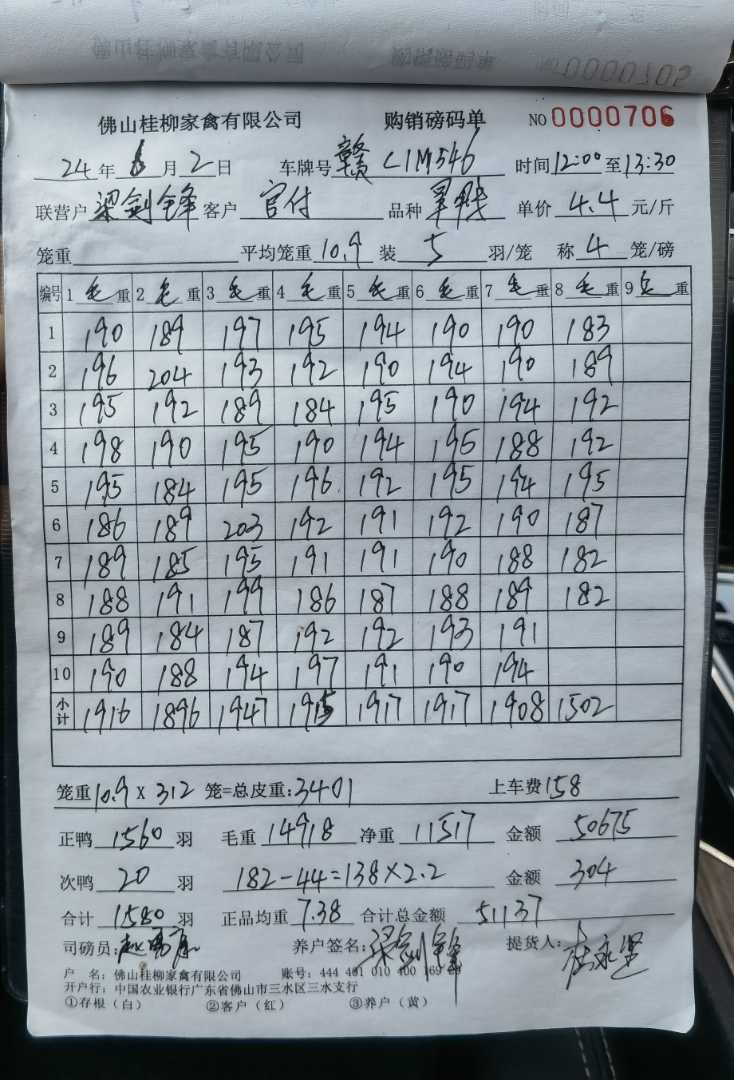 佛山桂柳家禽有限公司 购销磅码单 NO 0000706
24年6月2日 车牌号 赣C1M546 时间12:00至13:30
联营户 梁剑锋 客户 官付 品种 单价 4.4 元/斤
笼重 平均笼重 10.9 装 5 羽/笼 称 4 笼/磅
编号 1 毛 重 2 毛 重 3 毛 重 4 毛 重 5 毛 重 6 毛 重 7 毛 重 8 毛 重 9 重
1 190 189 197 195 194 190 190 183
2 196 204 193 192 190 194 190 189
3 195 192 189 184 195 190 194 192
4 198 190 195 190 194 195 188 192
5 195 184 195 196 192 195 194 195
6 186 189 203 192 191 192 190 187
7 189 185 195 191 191 190 188 182
8 188 191 199 186 187 188 189 182
9 189 184 187 192 192 193 191
10 190 188 194 197 191 190 194
小计 1916 1896 1947 1915 1917 1917 1908 1502
笼重 10.9 X 312 笼=总皮重: 3401 上车费 158
正鸭 1560 羽 毛重 14918 净重 11517 金额 50675
次鸭 20 羽 182-44=138×2.2 金额 304
合计 1580 羽 正品均重 7.38 合计总金额 51137
司磅员: 养户签名: 梁剑锋 提货人:
户 名: 佛山桂柳家禽有限公司 账号: 444 401 010 400 169
开户行: 中国农业银行广东省佛山市三水区三水支行
①存根（白） ②客户（红） ③养户（黄）